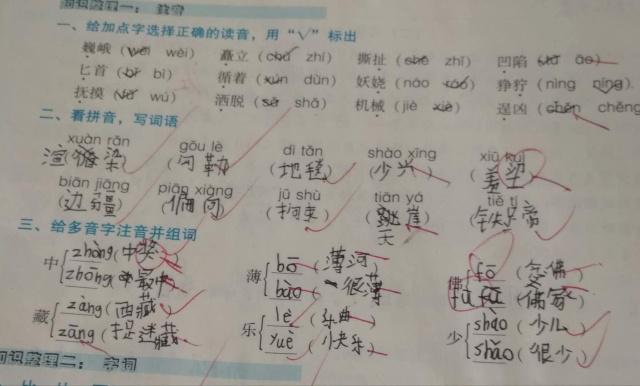 知识整理一：
一、给加点字选择正确的读音，用“√”标出
巍峨（wēi wèi） 矗立（chù zhí） 撕扯（chě zhǐ） 凹陷（āo）
匕首（bǐ bì） 循着（xún dùn） 妖娆（náo ráo） 狰狞（nìng níng）
抚摸（fǔ wú） 洒脱（sǎ shǎ） 机械（jiè xiè） 逞凶（chěn chěng
二、看拼音，写词语
xuàn rǎn gōu lè dì tǎn shào xīng xiū kuì
（渲染）（勾勒）（地毯）（少兴）（羞
biān jiāng piān xiàng jū shù tiān yá tiě tí
（边疆）（偏向）（拘束）（跳崖）（铁
天
三、给多音字注音并组词
中 zhòng（中奖） 薄 bō（薄河） 佛 fó（
zhōng 中最中 báo（很薄） fú（佛家）
藏 zàng（西藏） 乐 lè（乐曲） 少 shào（少儿）
zāng（捉迷藏） yuè（快乐） shǎo（很少）
知识整理二：字词